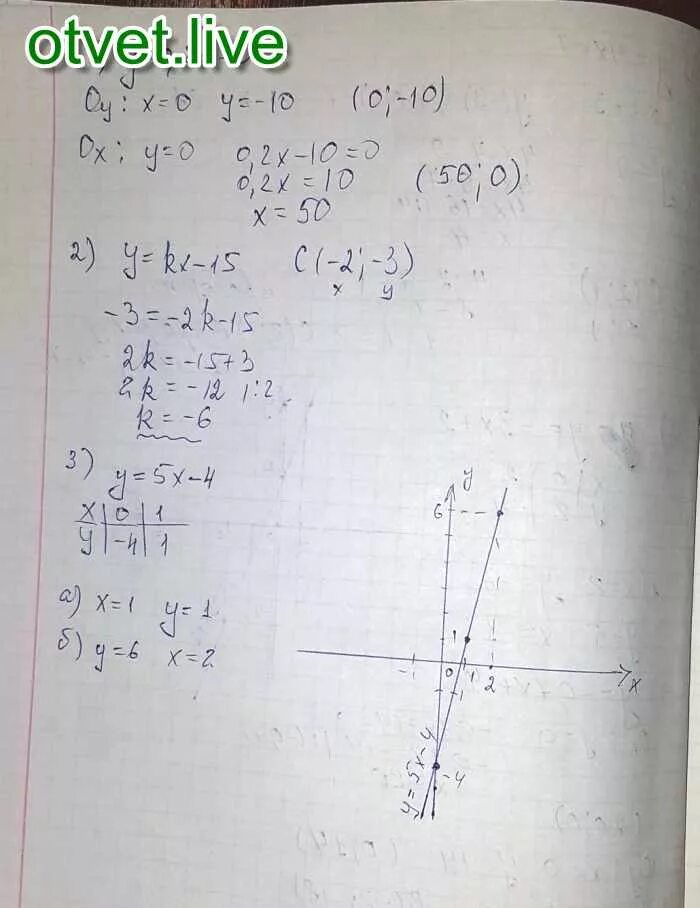 otvet.live
Oy: x=0 y=-10 (0;-10)
Ox: y=0 0,2x-10=0
0,2x=10 (50;0)
x=50
2) y=kx-15 C(-2;-3)
x y
-3=-2k-15
2k=-15+3
2k=-12 |:2
k=-6
3) y=5x-4
x | 0 | 1
y | -4 | 1
а) x=1 y=1
б) y=6 x=2
y
6
1
-1 0 1 2 x
-4
y=5x-4